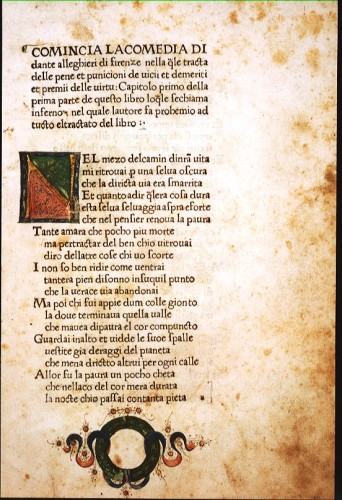 COMINCIA LA COMEDIA DI
dante alleghieri di firenze nella q̄le tracta
delle pene et punicioni de uicii et demeriti
et premii delle uirtu: Capitolo primo della
prima parte de questo libro loq̄le sechiama
inferno: nel quale lautore fa prohemio ad
tucto eltractato del libro:
NEL mezo delcamin dinr̄a uita
mi ritrouai p̱ una selua oscura
che la diricta uia era smarrita
Et quanto adir q̄lera cosa dura
esta selua seluaggia aspra eforte
che nel penser renoua la paura
Tante amara che pocho piu morte
ma pertractar del ben chio uitrouai
diro dellatre cose chi uo scorte
I non so ben ridir come uentrai
tantera pien disonno insuquil punto
che la uerace uia abandonai
Ma poi chi fui appie dum colle gionto
la doue terminaua quella ualle
che mauea dipaura el cor compuncto
Guardai inalto et uidde le suoe spalle
uestite gia deraggi del pianeta
che mena dricto altrui per ogni calle
Allor fu la paura un pocho cheta
che nellaco del cor mera durata
la nocte chio passai contanta pieta